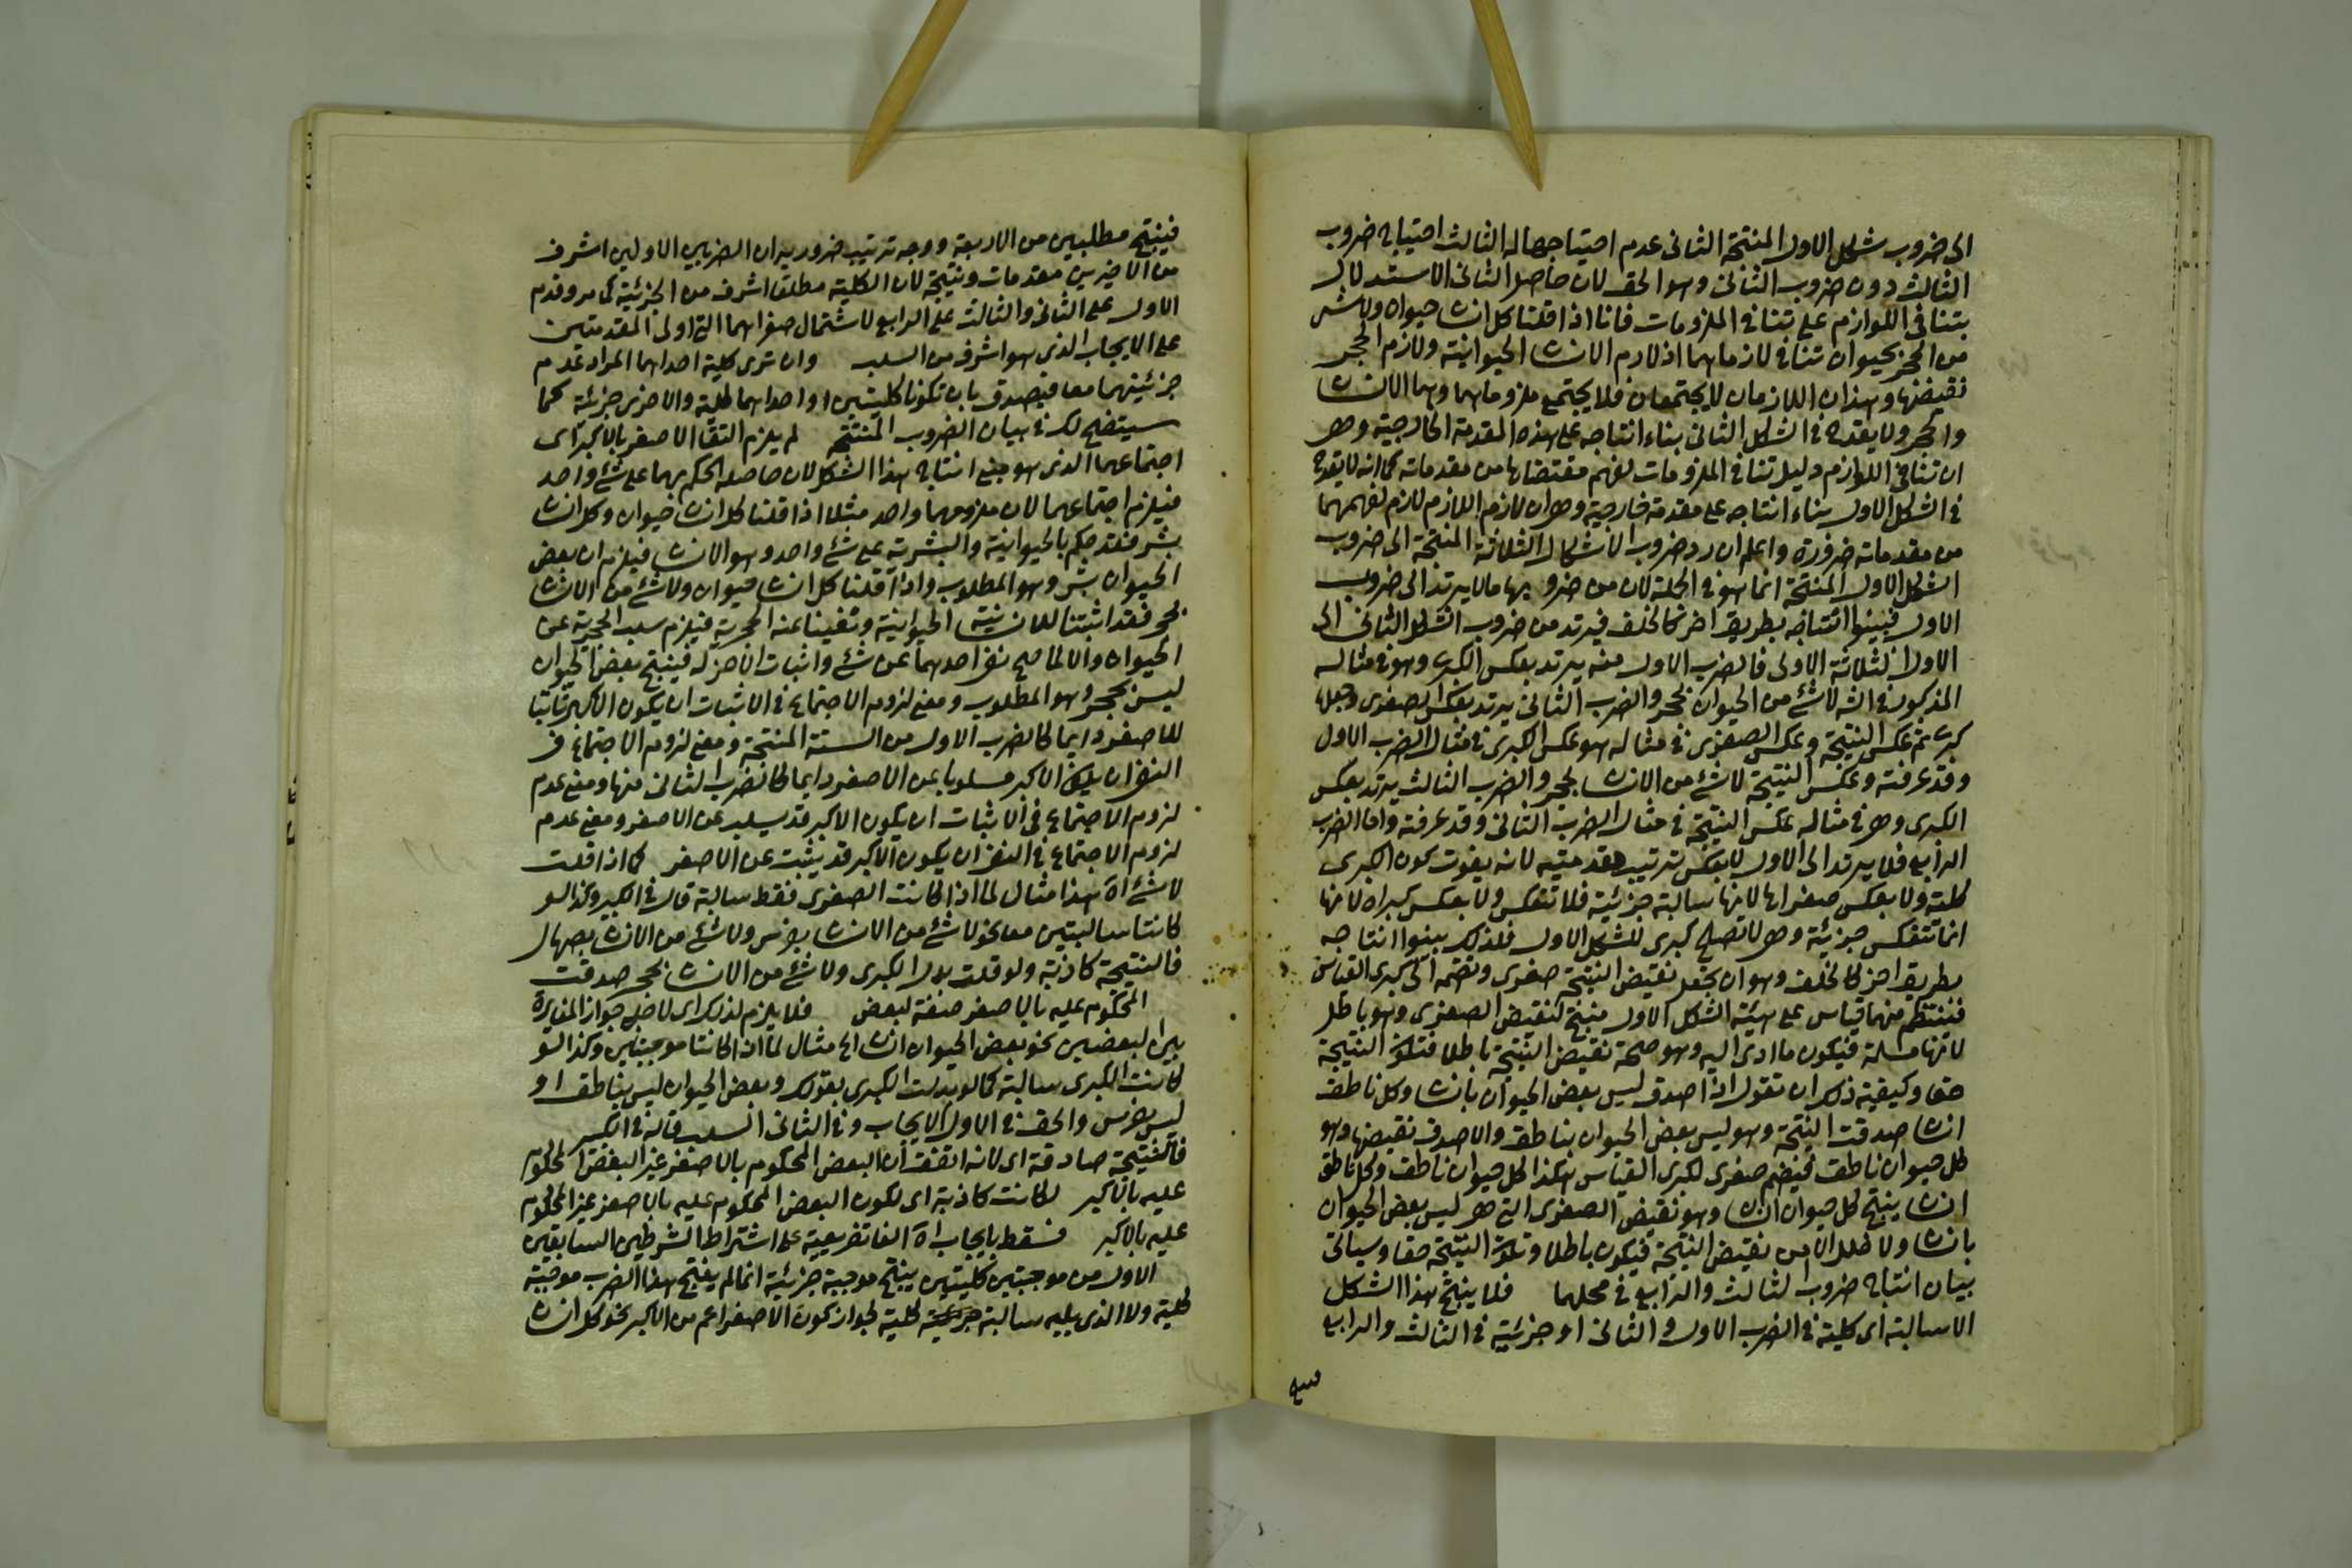 الى ضروب شكل الاول المنتجة الثانى عدم احتياجها له الثالث احتياج ضروب
الثالث دون ضروب الثانى وهو الحق لان حاصل الثانى الاستدلال
بتنافى اللوازم على تنافى الملزومات فانا اذا قلنا كل انسان حيوان ولا شئ
من الحجر بحيوان تنافى لازماهما اذ لازم الانسان الحيوانية ولازم الحجر
نقيضها وهذان اللازمان لا يجتمعان فلا يجتمع ملزوماهما وهما الانسان
والحجر ولا يقدح فى الشكل الثانى بناء انتاجه على هذه المقدمة الخارجية وهى
ان تنافى اللوازم دليل تنافى الملزومات لفهم مقتضاها من مقدماته كما انه لا يقدح
فى الشكل الاول بناء انتاجه على مقدمة خارجية وهى ان لازم اللازم لازم لفهمهما
من مقدماته ضرورة واعلم ان رد ضروب الاشكال الثلاثة المنتجة الى ضروب
الشكل الاول المنتجة انما هو فى الجملة لان من ضروبها ما لا يرتد الى ضروب
الاول فبينوا انتاجه بطريق اخر كالخلف فيرتد من ضروب الشكل الثانى الى
الاول الثلاثة الاولى فالضرب الاول منه يرتد بعكس الكبرى وهو فى مثاله
المذكور فى الش لا شئ من الحيوان بحجر والضرب الثانى يرتد بعكس الصغرى وجعلها
كبرى ثم عكس النتيجة وعكس الصغرى فى مثاله هو عكس الكبرى فى مثال الضرب الاول
وقد عرفته وعكس النتيجة لا شئ من الانسان بحجر والضرب الثالث يرتد بعكس
الكبرى وهى فى مثاله عكس النتيجة فى مثال الضرب الثانى وقد عرفته واما الضرب
الرابع فلا يرتد الى الاول لا بعكس ترتيب مقدمتيه لانه يفوت كون الكبرى
كلية ولا بعكس صغراها لانها سالبة جزئية فلا تنعكس ولا بعكس كبراه لانها
انما تنعكس جزئية وهى لا تصلح كبرى للشكل الاول فلذلك بينوا انتاجه
بطريق اخر كالخلف وهو ان يجعل نقيض النتيجة صغرى وتضمه الى كبرى القياس
فينتظم منهما قياس على هيئة الشكل الاول منتج لنقيض الصغرى وهو باطل
لانها مسلمة فيكون ما ادى اليه وهو صحة نقيض النتيجة باطلا فتكون النتيجة
حقا وكيفية ذلك ان تقول اذا صدق ليس بعض الحيوان بانسان وكل ناطق
انسان صدقت النتيجة وهو ليس بعض الحيوان بناطق والا صدق نقيضها وهو
كل حيوان ناطق فيضم صغرى لكبرى القياس هكذا كل حيوان ناطق وكل ناطق
انسان ينتج كل حيوان انسان وهو نقيض الصغرى التى هى ليس بعض الحيوان
بانسان ولا خلل الا من نقيض النتيجة فيكون باطلا وتكون النتيجة حقا وسياتى
بيان انتاج ضروب الثالث والرابع فى محلهما فلا ينتج هذا الشكل
الا سالبة اى كلية فى الضرب الاول و الثانى او جزئية فى الثالث والرابع
فينتج
فينتج مطلبين من الاربعة ووجه ترتيب ضروبه ان الضربين الاولين اشرف
من الاخيرين مقدمات ونتيجة لان الكلية مطلقا اشرف من الجزئية كما مر وقدم
الاول على الثانى والثالث على الرابع لاشتمال صغراهما التى اولى المقدمتين
على الايجاب الذى هو اشرف من السلب وان ترى كلية احداهما المراد عدم
جزئيتهما معا فيصدق بان تكونا كليتين او احداهما كلية والاخرى جزئية كما
سيتضح لك فى بيان الضروب المنتجة لم يلزم التقا الاصغر بالاكبر اى
اجتماعهما الذى هو منع انتاج هذا الشكل لان حاصله الحكم بهما على شئ واحد
فيلزم اجتماعهما لان ملزومهما واحد مثلا اذا قلنا كل انسان حيوان وكل انسان
بشر فقد حكم بالحيوانية والبشرية على شئ واحد وهو الانسان فيلزم ان بعض
الحيوان بشر وهو المطلوب واذا قلنا كل انسان حيوان ولا شئ من الانسان
بحجر فقد اثبتنا للانسانية الحيوانية ونفينا عنه الحجرية فيلزم سلب الحجرية عن
الحيوان والا لما صح نفى احدهما عن شئ واثبات الاخر له فينتج بعض الحيوان
ليس بحجر وهو المطلوب ومعنى لزوم الاجتماع فى الاثبات ان يكون الاكبر ثابتا
للاصغر دايما كالضرب الاول من الستة المنتجة ومعنى لزوم الاجتماع فى
النفى ان يكون الاكبر مسلوبا عن الاصغر دايما كالضرب الثانى منها ومعنى عدم
لزوم الاجتماع فى الاثبات ان يكون الاكبر قد يسلب عن الاصغر ومعنى عدم
لزوم الاجتماع فى النفى ان يكون الاكبر قد يثبت عن الاصغر كما اذا قلت
لا شئ اه هذا مثال لما اذا كانت الصغرى فقط سالبة قال فى الكبير وكذا لو
كانتا سالبتين معا نحو لا شئ من الانسان بفرس ولا شئ من الانسان بصهال
فالنتيجة كاذبة ولو قلت بدل الكبرى ولا شئ من الانسان بحجر صدقت
المحكوم عليه بالاصغر صفة لبعض فلا يلزم لذلك اى لاجل جواز المغايرة
بين البعضين نحو بعض الحيوان انسان الخ مثال لما اذا كانتا موجبتين وكذا لو
كانت الكبرى سالبة كما لو بدلت الكبرى بقولك وبعض الحيوان ليس بناطق او
ليس بفرس والحق فى الاول الايجاب وفى الثانى السلب قاله فى الكبير
فالنتيجة صادقة اى لانه اتفق ان البعض المحكوم بالاصغر غير البعض المحكوم
عليه بالاكبر لكانت كاذبة اى لكون البعض المحكوم عليه بالاصغر عين المحكوم
عليه بالاكبر فسقط بايجاب اه الفا تفريعية على اشتراط الشرطين السابقين
الاول من موجبتين كليتين ينتج موجبة جزئية انما لم ينتج هذا الضرب موجبة
كلية ولا الذى يليه سالبة كلية لجواز كون الاصغر اعم من الاكبر نحو كل انسان